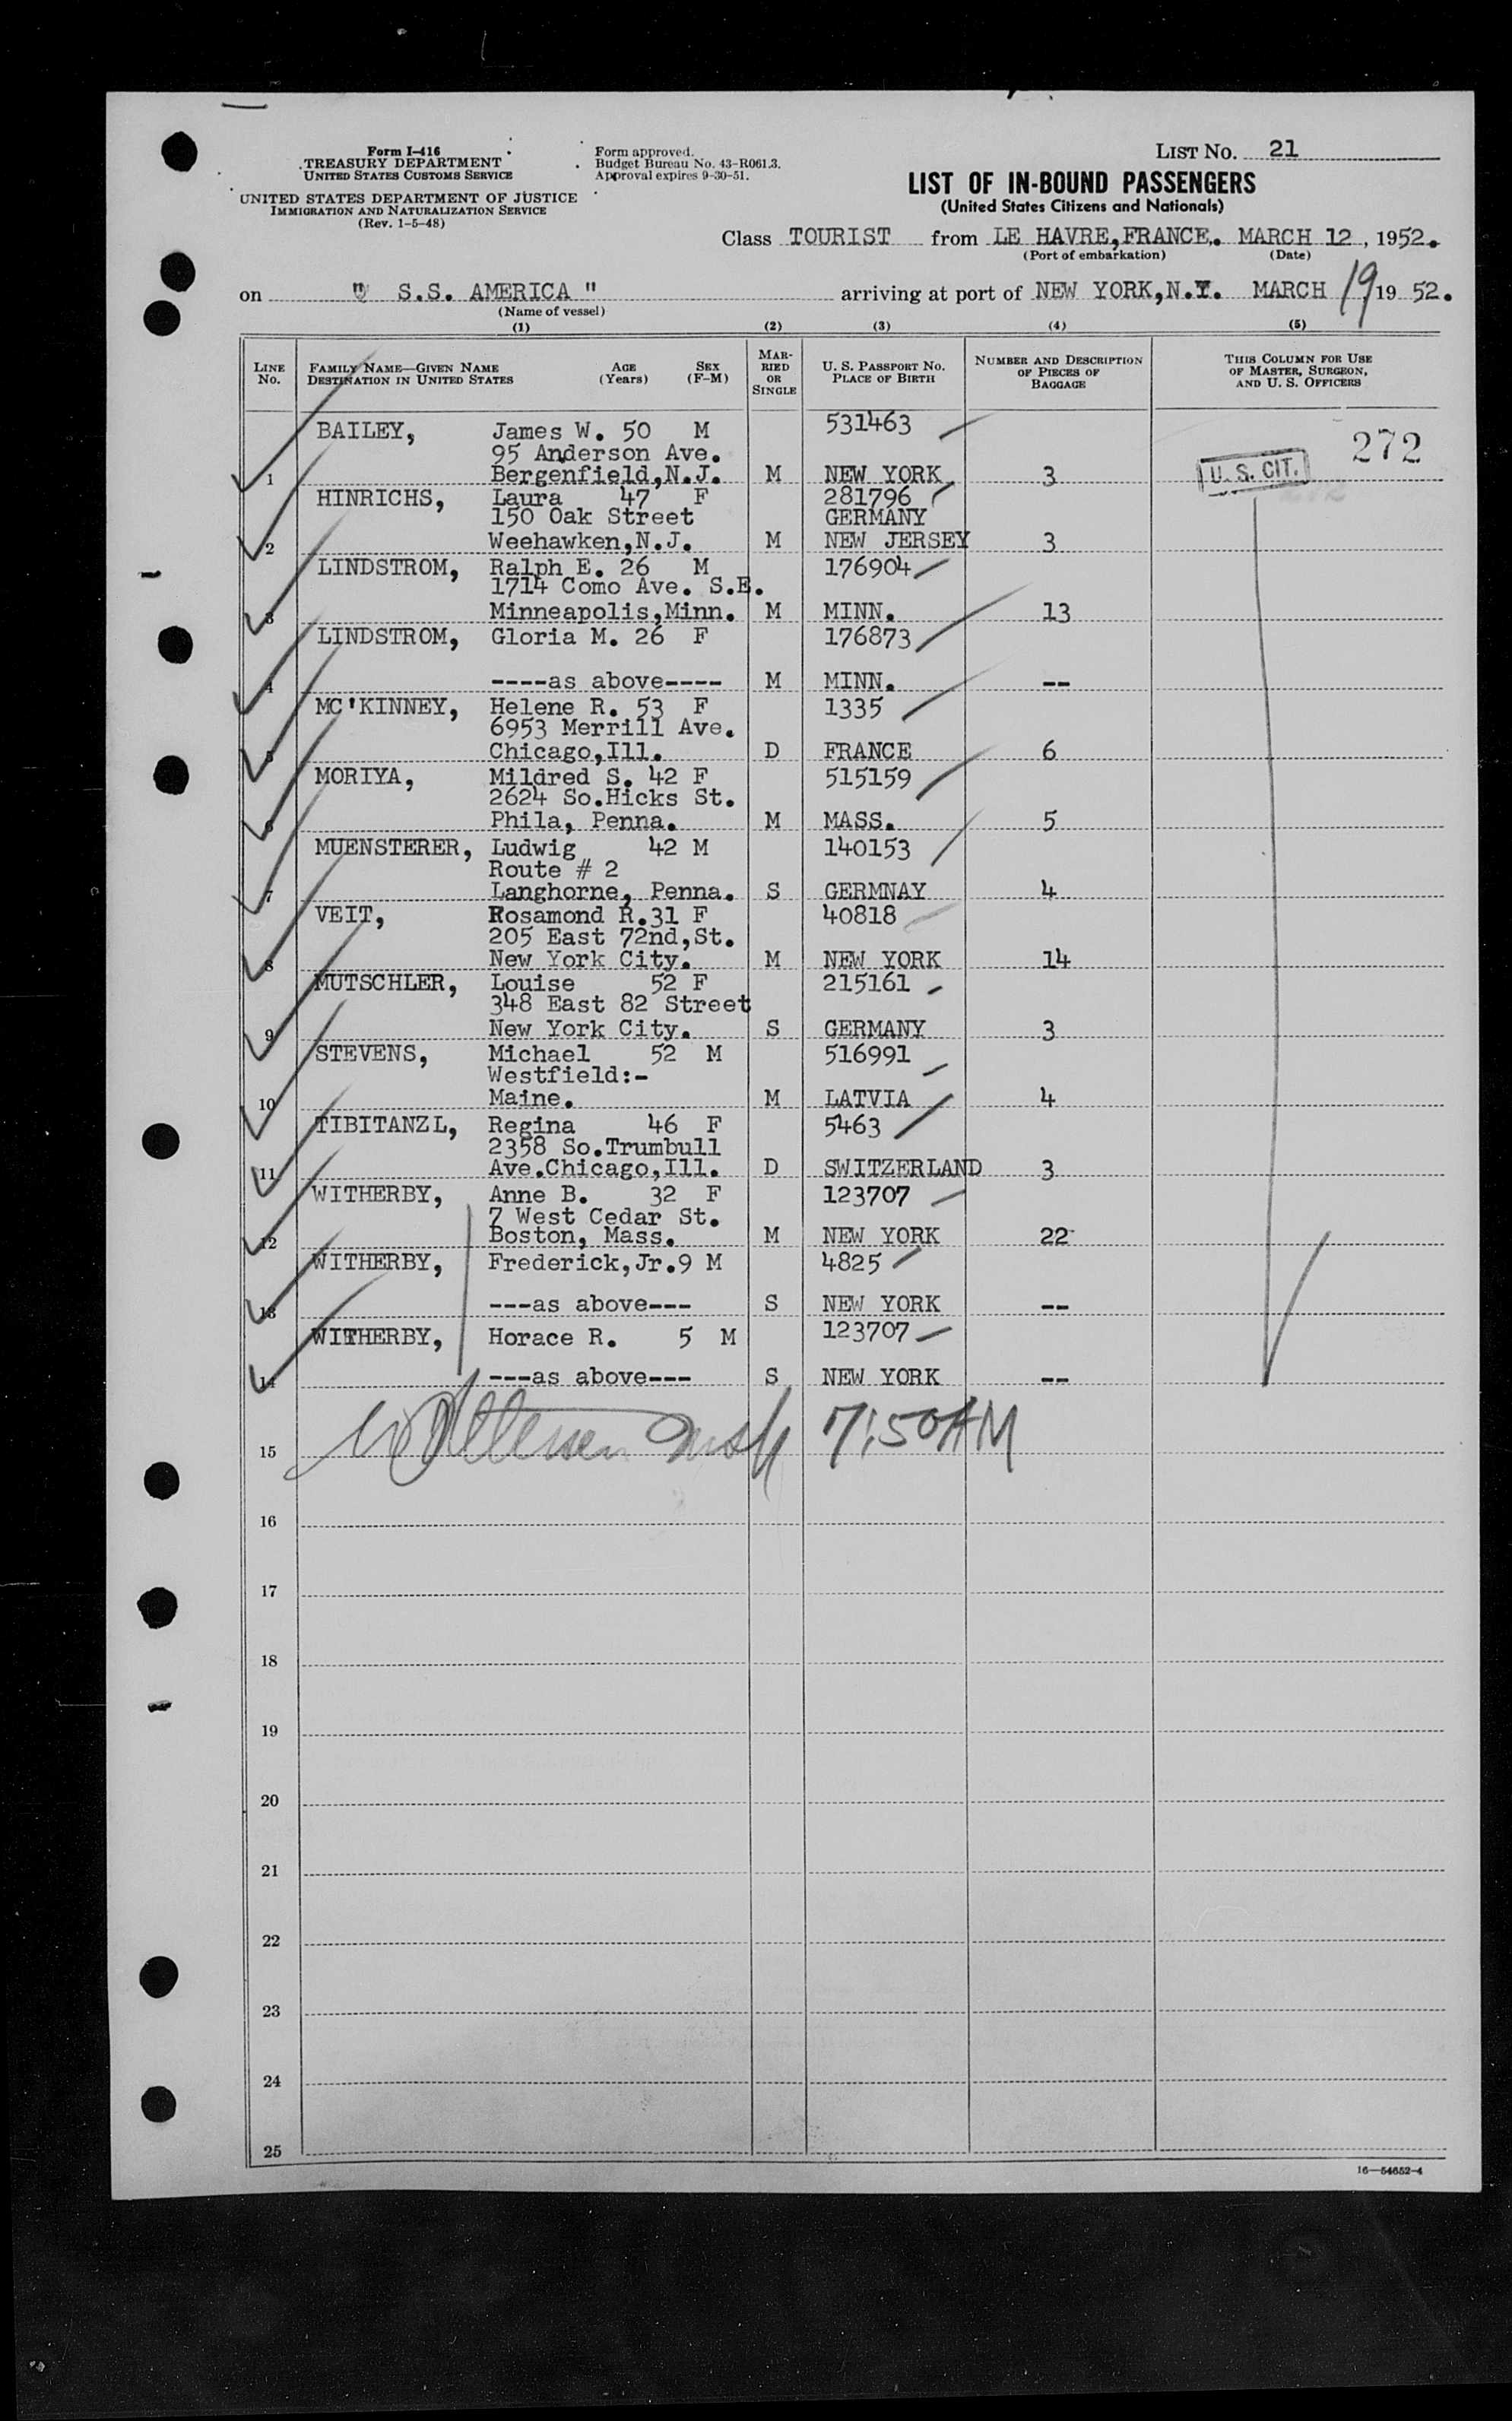 Form I-416
TREASURY DEPARTMENT
UNITED STATES CUSTOMS SERVICE
UNITED STATES DEPARTMENT OF JUSTICE
IMMIGRATION AND NATURALIZATION SERVICE
(Rev. 1-5-48)
Form approved.
Budget Bureau No. 43-R061.3.
Approval expires 9-30-51.
LIST NO. 21
LIST OF IN-BOUND PASSENGERS
(United States Citizens and Nationals)
Class TOURIST from LE HAVRE,FRANCE. MARCH 12, 1952.
(Port of embarkation) (Date)
on " S.S. AMERICA " arriving at port of NEW YORK,N.Y. MARCH 19 1952.
(Name of vessel)
(1) (2) (3) (4) (5)
LINE No. FAMILY NAME—GIVEN NAME DESTINATION IN UNITED STATES AGE (Years) SEX (F-M) MARRIED OR SINGLE U. S. PASSPORT NO. PLACE OF BIRTH NUMBER AND DESCRIPTION OF PIECES OF BAGGAGE THIS COLUMN FOR USE OF MASTER, SURGEON, AND U. S. OFFICERS
BAILEY, James W. 50 M 531463
95 Anderson Ave. 272
1 Bergenfield,N.J. M NEW YORK 3 U. S. CIT.
HINRICHS, Laura 47 F 281796
150 Oak Street GERMANY
2 Weehawken,N.J. M NEW JERSEY 3
LINDSTROM, Ralph E. 26 M 176904
1714 Como Ave. S.E.
3 Minneapolis,Minn. M MINN. 13
LINDSTROM, Gloria M. 26 F 176873
4 ----as above---- M MINN. --
MC'KINNEY, Helene R. 53 F 1335
6953 Merrill Ave.
5 Chicago,Ill. D FRANCE 6
MORIYA, Mildred S. 42 F 515159
2624 So.Hicks St.
6 Phila, Penna. M MASS. 5
MUENSTERER, Ludwig 42 M 140153
Route # 2
7 Langhorne, Penna. S GERMNAY 4
VEIT, Rosamond R.31 F 40818
205 East 72nd,St.
8 New York City. M NEW YORK 14
MUTSCHLER, Louise 52 F 215161
348 East 82 Street
9 New York City. S GERMANY 3
STEVENS, Michael 52 M 516991
Westfield:-
10 Maine. M LATVIA 4
TIBITANZL, Regina 46 F 5463
2358 So.Trumbull
11 Ave.Chicago,Ill. D SWITZERLAND 3
WITHERBY, Anne B. 32 F 123707
7 West Cedar St.
12 Boston, Mass. M NEW YORK 22
WITHERBY, Frederick,Jr.9 M 4825
13 ---as above--- S NEW YORK --
WITHERBY, Horace R. 5 M 123707
14 ---as above--- S NEW YORK --
15 7:50AM
16
17
18
19
20
21
22
23
24
25
16—54652-4